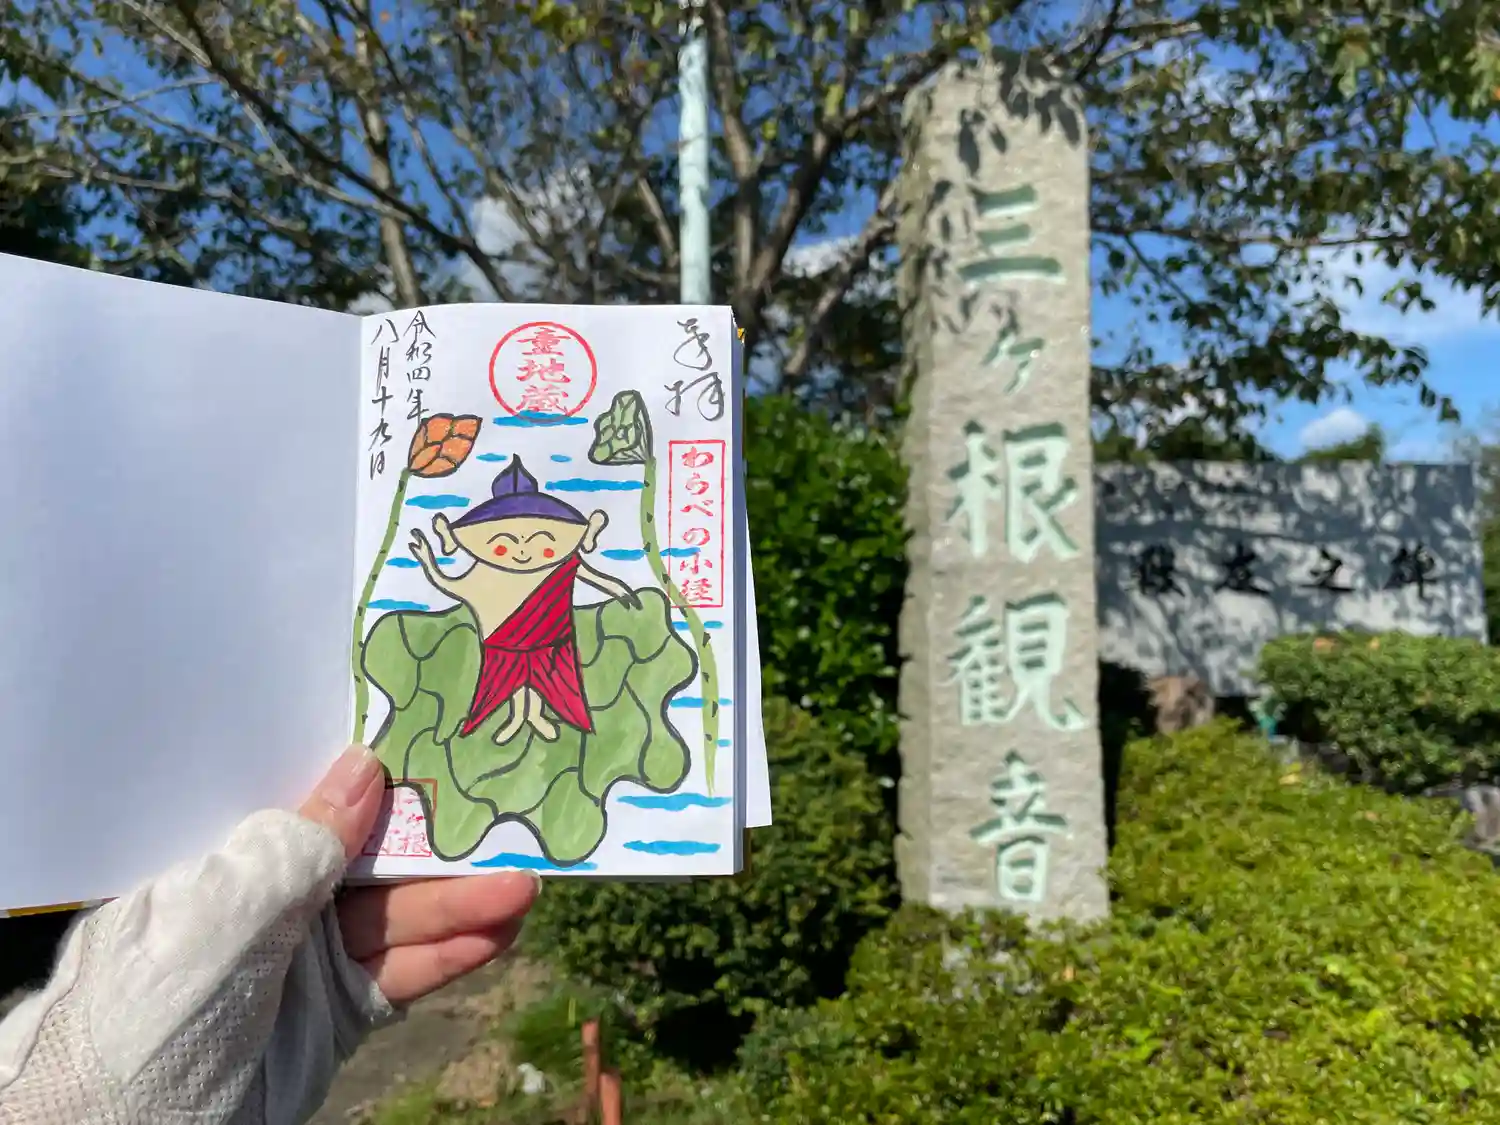 奉拝
わらべの小径
童地蔵
令和四年
八月十九日
三ヶ根観音